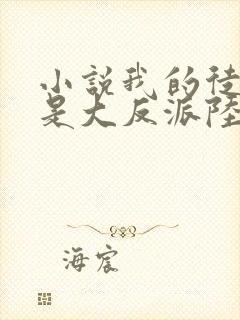 小説我的徒
是大反派陸
海宸